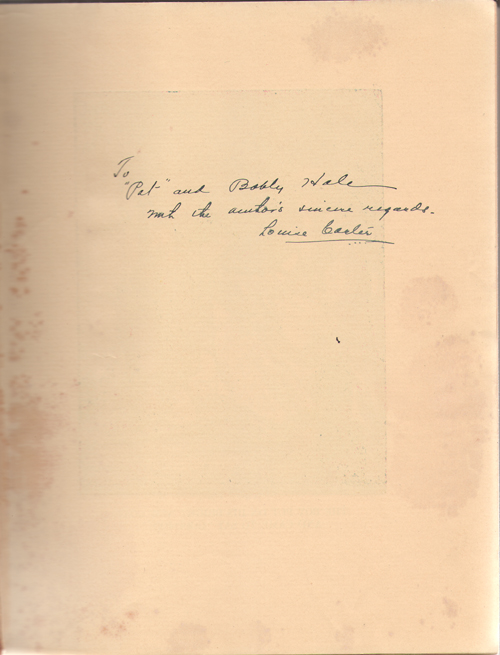 To
"Pet" and Bobby Hale
with the author's sincere regards.
Louise Carter